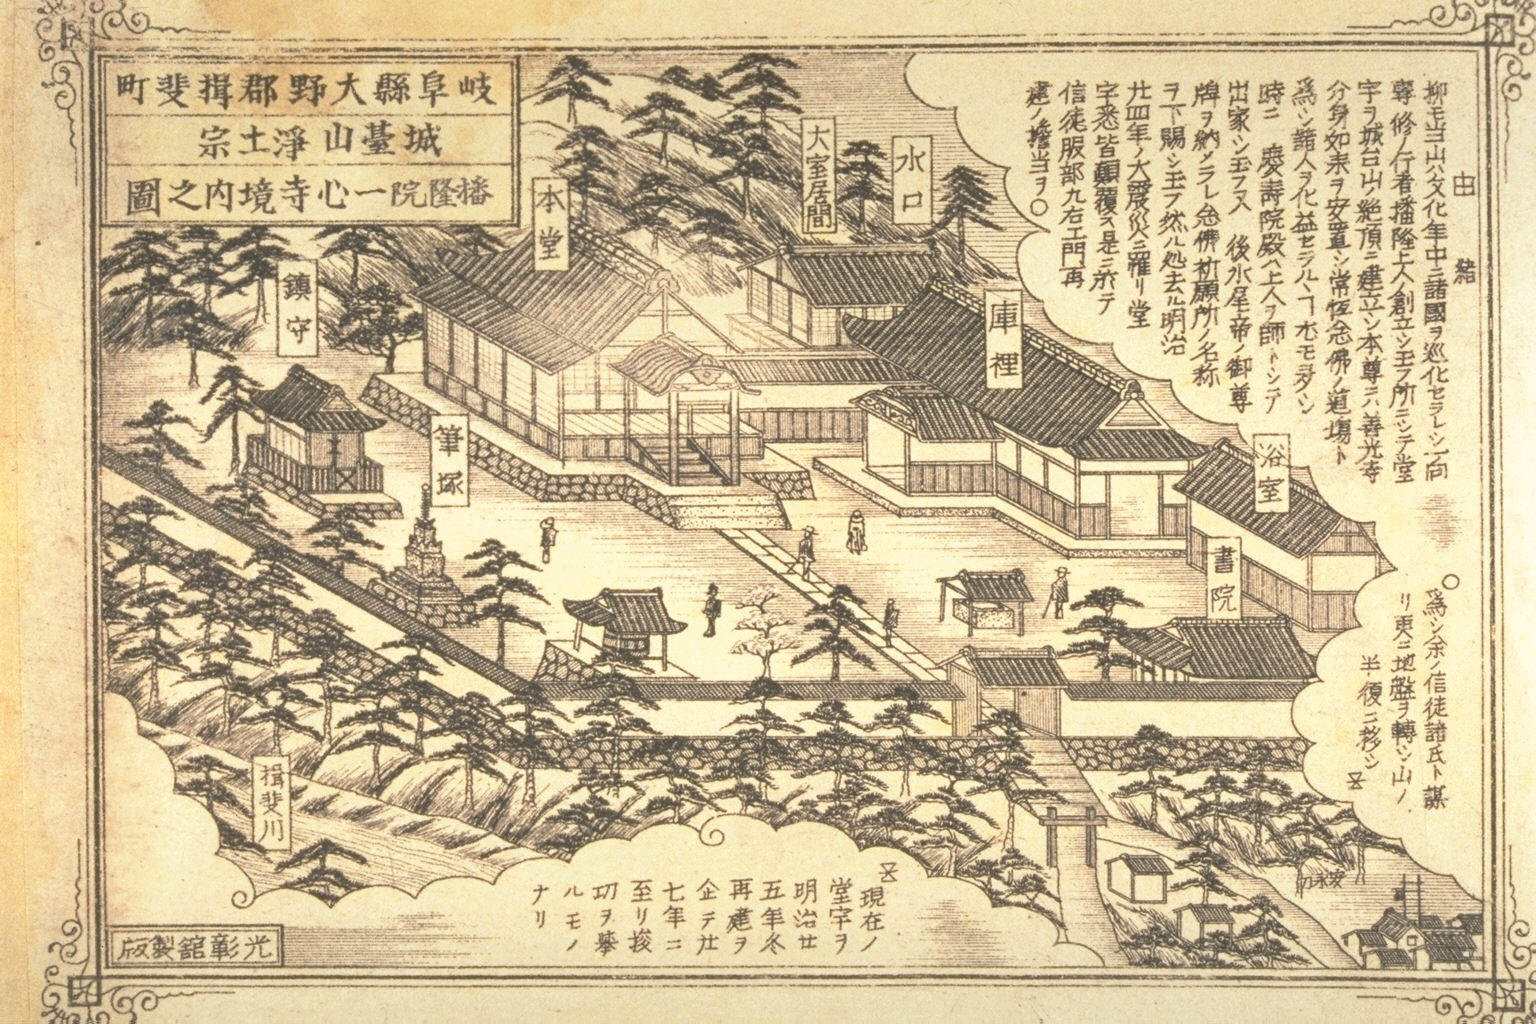 岐阜縣大野郡揖斐町
城臺山淨土宗
播隆院一心寺境内之圖
由緒
抑モ当山ハ文化年中ニ諸國ヲ巡化セラレシ向
尊修ノ行者播隆上人ノ創立シ玉フ所ニシテ堂
宇ヲ城台山ノ絶頂ニ建立シ本尊ニハ善光寺
分身如来ヲ安置シ常恒念佛ノ道場ト
為シ諸人ヲ化益セラルヽ
時ニ 慶壽院殿ハ上人ヲ師トシテ
出家シ玉フ又 後水尾帝ノ御尊
牌ヲ納メラレ念佛祈願所ノ名称
ヲ下賜シ玉フ然ル処去ル明治
廿四年ノ大震災ニ罹リ堂
宇悉皆顛覆ス是ニ於テ
信徒服部九右エ門再
建ノ擔当ヲ〇
〇為シ余ノ信徒諸氏ト謀
リ更ニ地盤ヲ轉シ山ノ
半復ニ移シ
現在ノ
堂宇ヲ
明治廿
五年冬
再建ヲ
企テ廿
七年ニ
至リ竣
功ヲ挙
ルモノ
ナリ
水口
大室居間
本堂
鎮守
庫裡
筆塚
浴室
書院
揖斐川
光彰舘製版